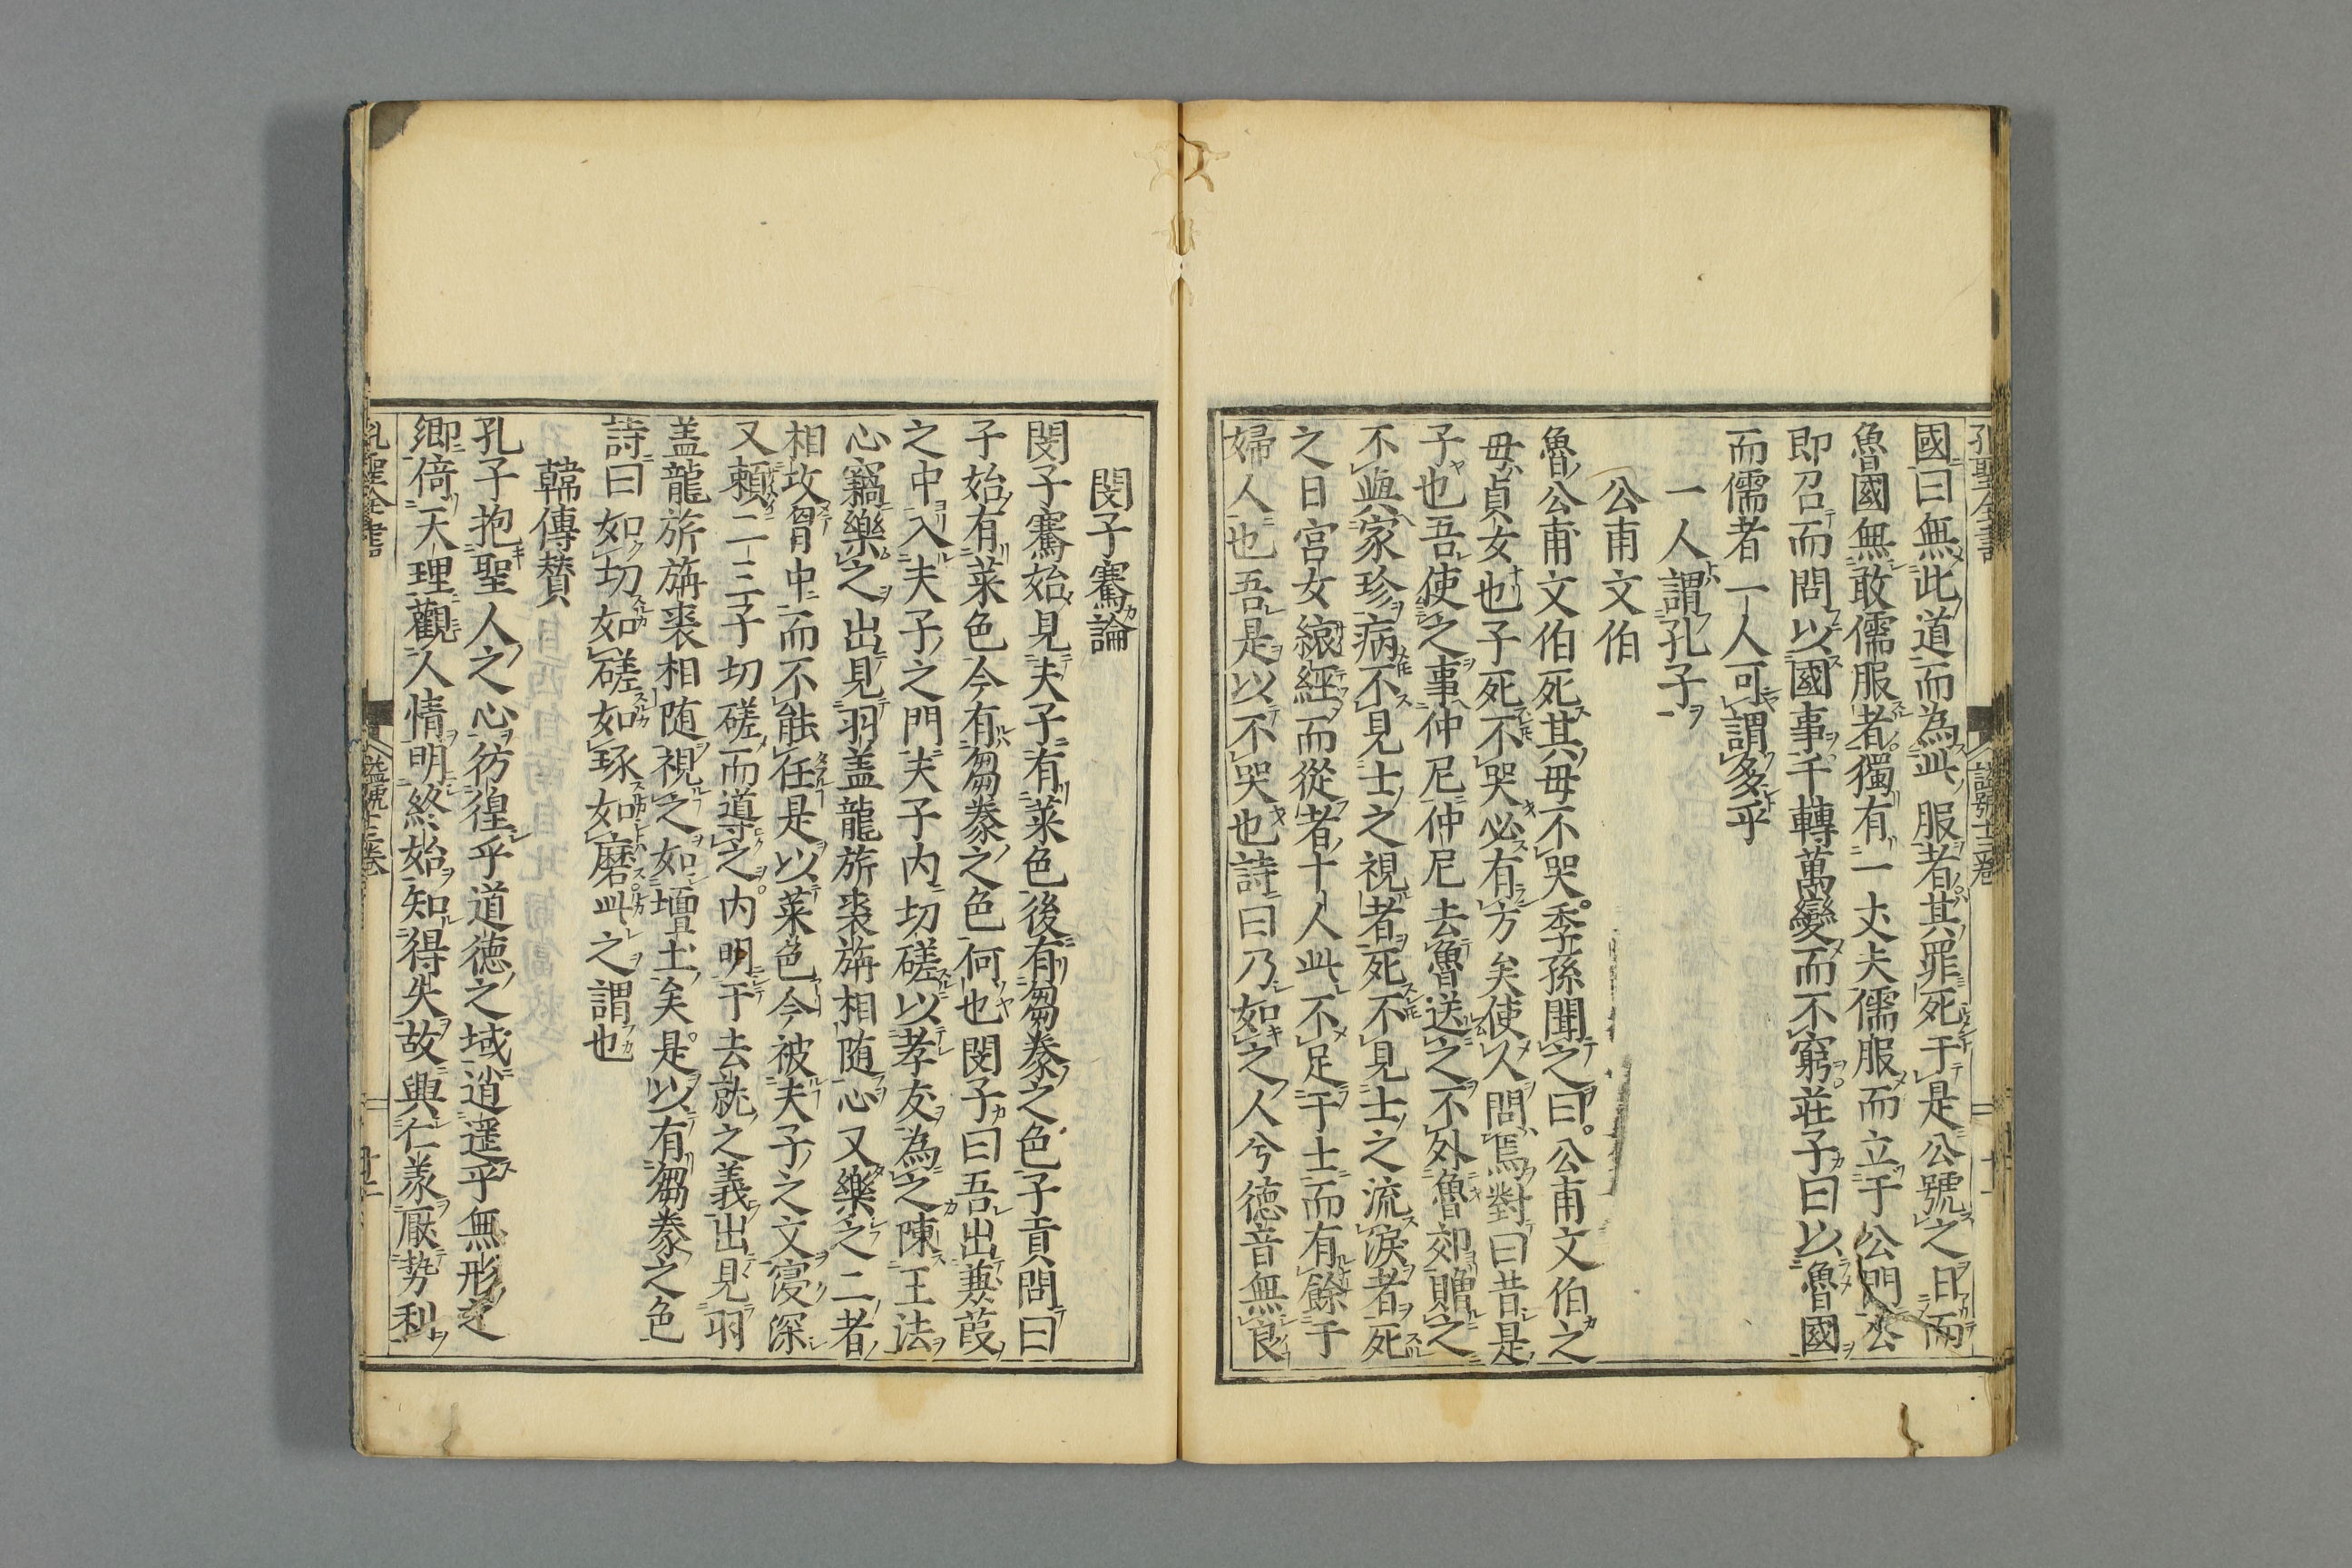 國曰無此道而為此服者其罪死于是公號之日而
魯國無敢儒服者獨有一丈夫儒服而立于公門公
即召而問以國事千轉萬變而不窮莊子曰以魯國
而儒者一人可謂多乎
一人謂孔子
公甫文伯
魯公甫文伯死其母不哭季孫聞之曰公甫文伯之
母貞女也子死不哭必有方矣使人問焉對曰昔是
子也吾使之事仲尼仲尼去魯送之不外魯郊贈之
不與家珍病不見士之視者死不見士之流淚者死
之日宮女縗絰而從者十人此不足于士而有餘于
婦人也吾是以不哭也詩曰乃如之人兮德音無良
閔子騫論
閔子騫始見夫子有菜色後有芻豢之色子貢問曰
子始有菜色今有芻豢之色何也閔子曰吾出蒹葭
之中入夫子之門夫子内切磋以孝友為之陳王法
心竊樂之出見羽盖龍旂裘旃相随心又樂之二者
相攻胷中而不能任是以菜色今被夫子之文寖深
又頼二三子切磋而導之内明于去就之義出見羽
盖龍旂旃裘相随視之如壇土矣是以有芻豢之色
詩曰如切如磋如琢如磨此之謂也
韓傳賛
孔子抱聖人之心彷徨乎道德之域逍遥乎無形之
鄉倚天理觀人情明終始知得失故興仁義厭势利